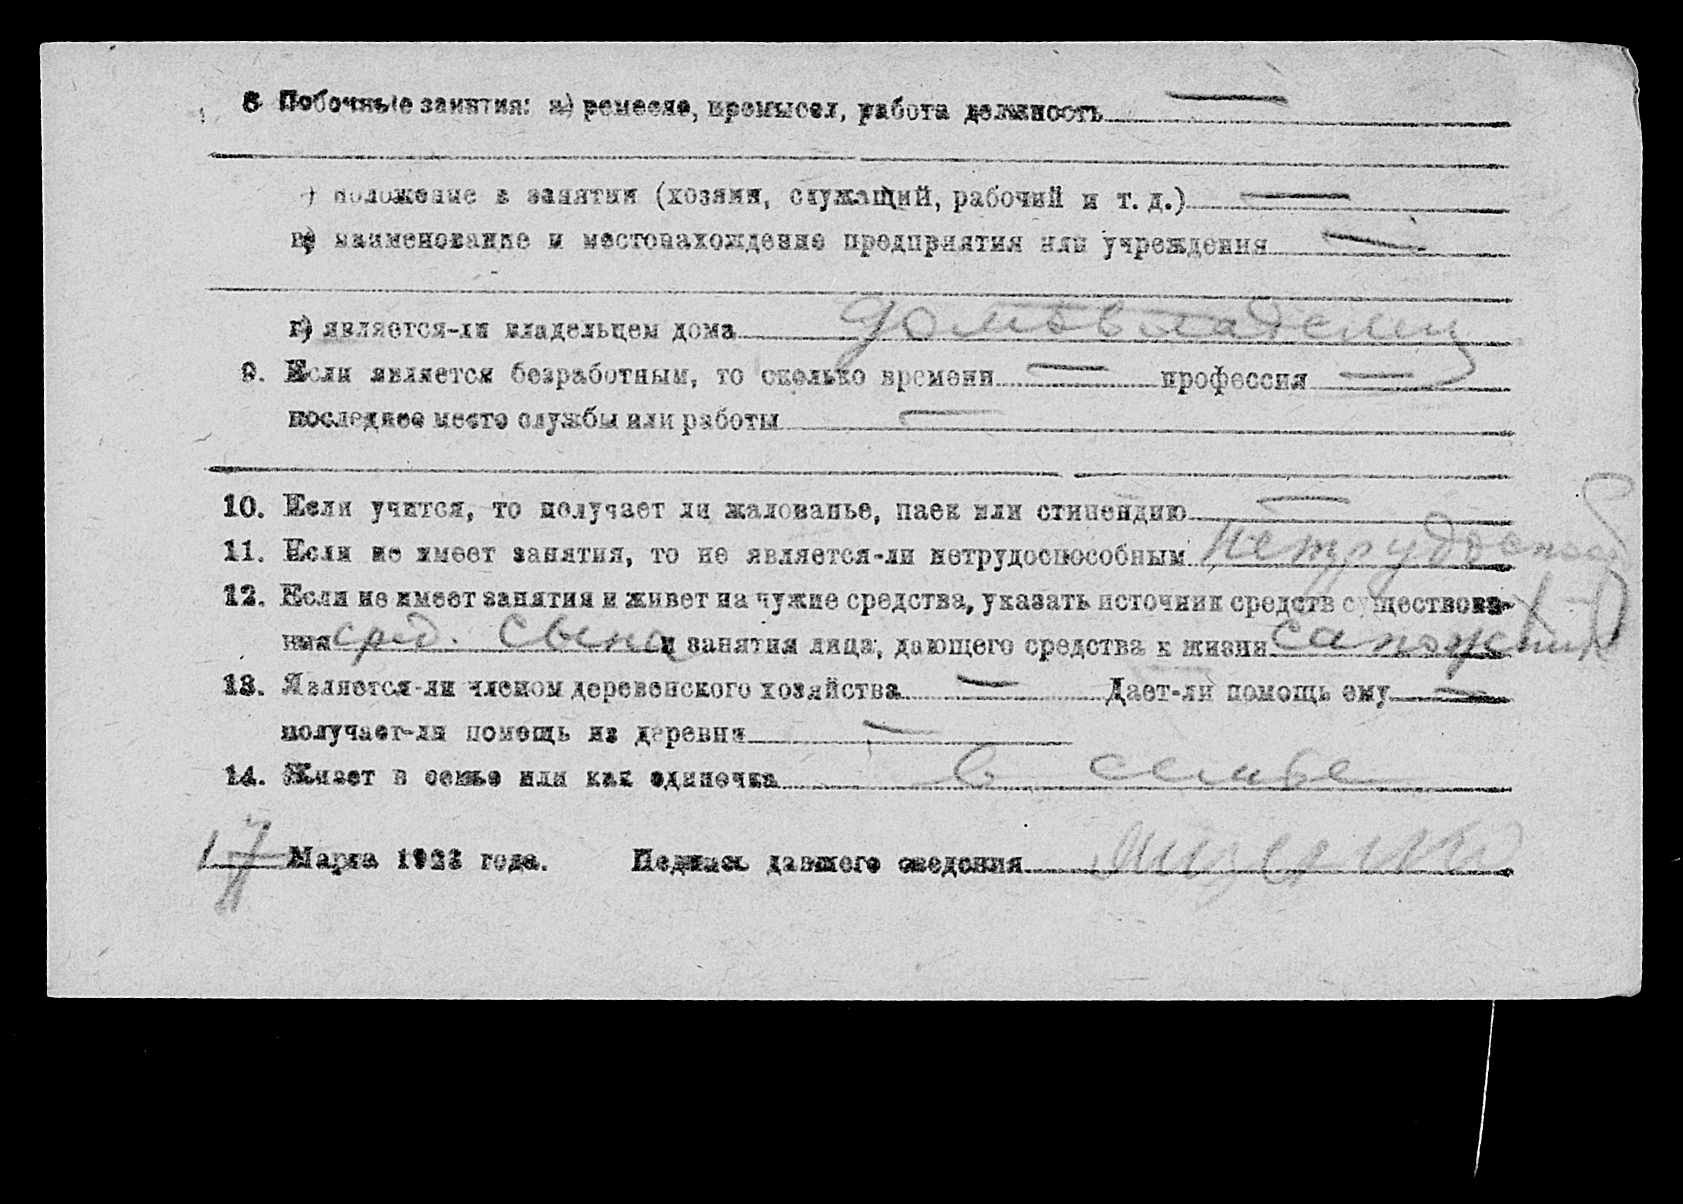 8 Побочные занятия: а) ремесло, промысел, работа должность —
) положение в занятии (хозяин, служащий, рабочий и т. д.) —
в) наименование и местонахождение предприятия или учреждения —
г) является-ли владельцем дома домовладелец
9. Если является безработным, то сколько времени — профессия —
последнее место службы или работы —
10. Если учится, то получает ли жалованье, паек или стипендию —
11. Если не имеет занятия, то не является-ли нетрудоспособным нетрудоспособ
12. Если не имеет занятия и живет на чужие средства, указать источник средств существова-
ния сред. сына и занятия лица, дающего средства к жизни сапожник
13. Является-ли членом деревенского хозяйства — Дает-ли помощь ему —
получает-ли помощь из деревни —
14. Живет в семье или как одиночка в семье
17 Марта 1923 года. Подпись давшего сведения